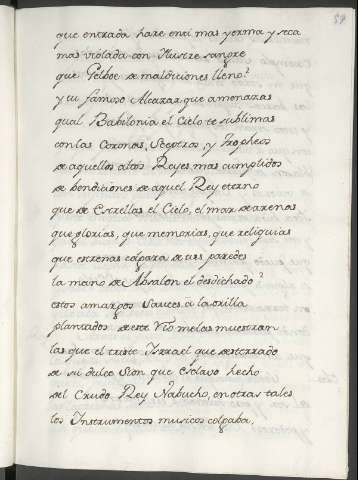 58
que entrada hare en ti mas yerma y seca
mas violada con Ilustre sangre
que Gelboe de maldiciones lleno?
y tu famoso Alcazar que amenazas
qual Babilonia el Cielo te sublimas
con las Coronas, Sceptros, y Tropheos
de aquellos altos Reyes, mas cumplidos
de bendiciones de aquel Rey eterno
que de Estrellas el Cielo, el mar de arenas
que glorias, que memorias, que reliquias
que estrenas colgara de tus paredes
la mano de Absalon el desdichado?
estos amargos Sauces a la orilla
plantados de este Rio me las muestran
las que el triste Isrrael que desterrado
de su dulce Sion que esclavo hecho
del Crudo Rey Nabucho, en otras tales
los Instrumentos musicos colgaba,